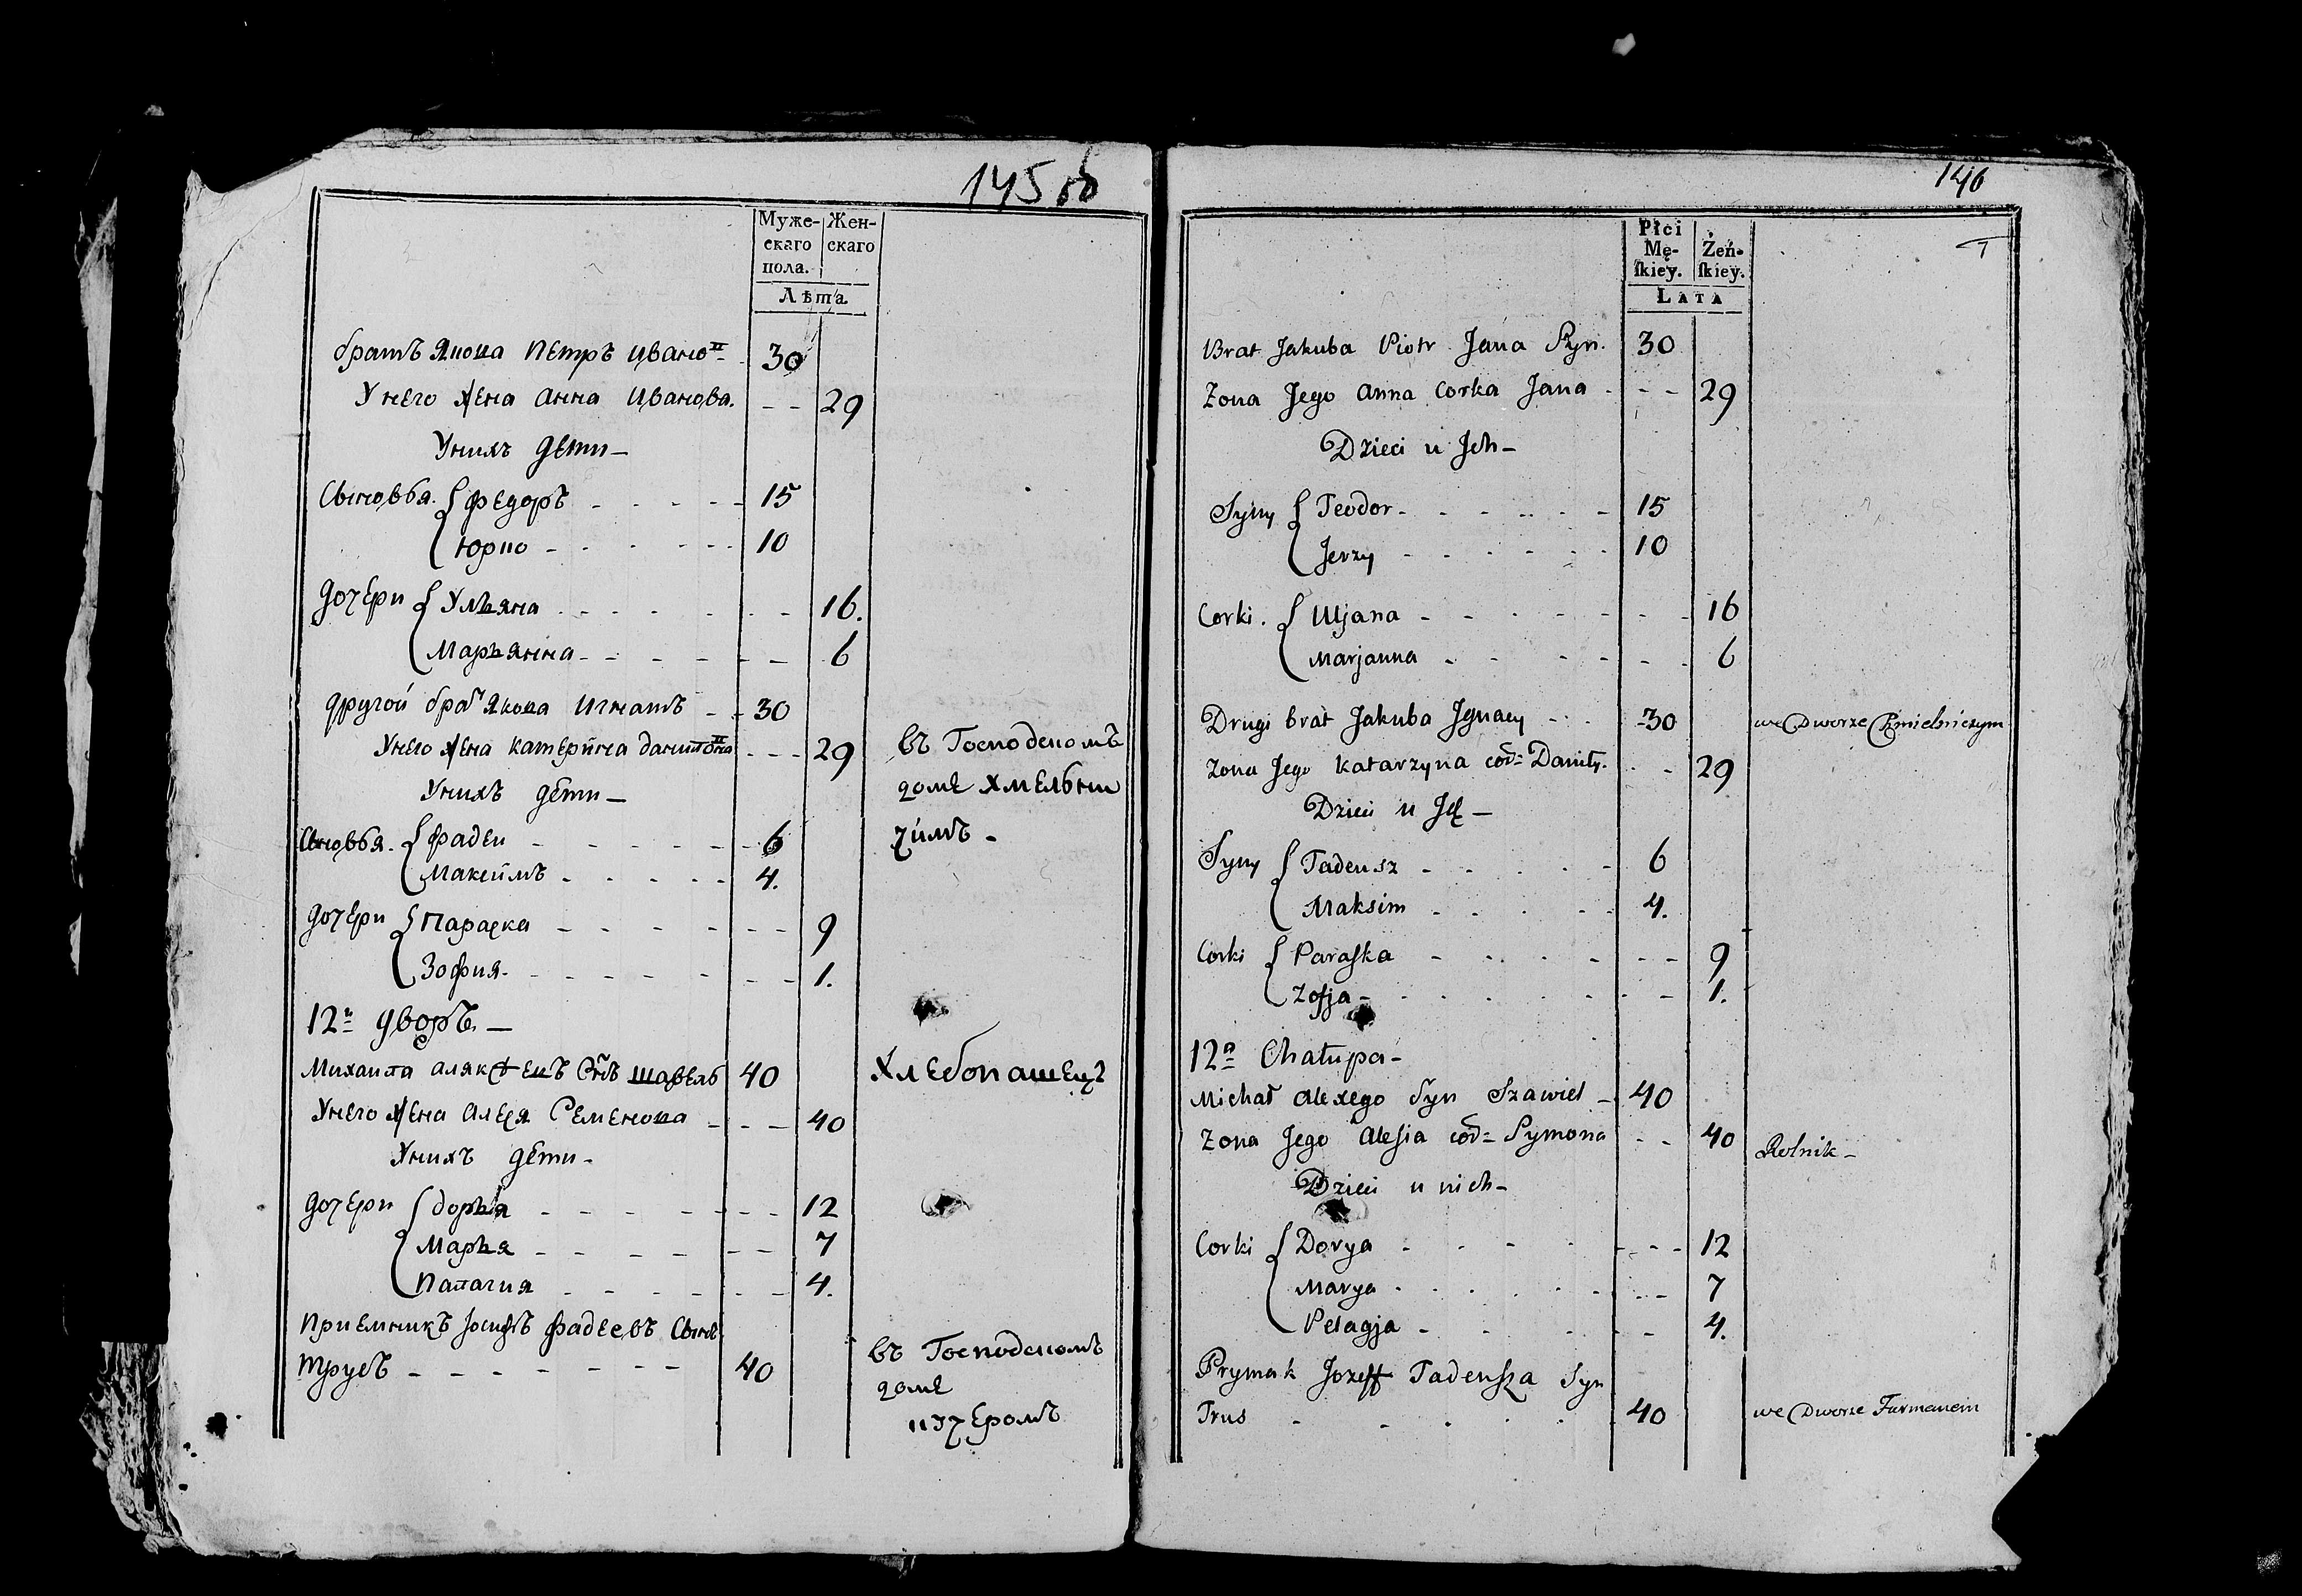 145 об
Муже-
скаго
пола.
Жен-
скаго
Лѣта
братъ Якова Петръ Ивано 30
У него жена Анна Иванова. - - 29
У нихъ дети -
Сыновья. Федоръ - - - - 15
Юрко - - - - 10
Дочери Ульяна - - - - 16.
Марьянна - - - - 6
другой бра Якова Игнатъ - - 30
У него жена Катерина Данило - - - 29 въ Господскомъ
доме Хмельни
У нихъ дети -
чимъ -
Сыновья. Фадеи - - - - 6
Максимъ - - - - 4.
Дочери Параска - - - - 9
Зофия - - - - 1.
12 дворъ. -
Михаила Алякѣевъ Снъ Шавель 40 Хлебопашецъ
У него жена Алеся Семенова - - - 40
У нихъ дети -
Дочери Дорья - - - - 12
Марья - - - - 7
Палагия - - - - 4.
Приемникъ Іосифъ Фадеевъ Сынъ
Трусъ - - - - 40
въ Господскомъ
доме
146
Płci
Mę-
ſkiey.
Żeń-
ſkiey.
Lata
Brat Jakuba Piotr Jana Syn. 30
Zona Jego Anna Corka Jana - - - 29
Dzieci u Ich -
Syny Teodor - - - - 15
Jerzy - - - - 10
Corki. Uljana - - - - 16
Marjanna - - - - 6
Drugi brat Jakuba Jgnacy - - - 30 we Dworze Chmielniczym
Zona Jego Katarzyna cor= Daniły. - - 29
Dzieci u Ich -
Syny Tadeusz - - - - 6
Maksim - - - - 4.
Corki Paraſka - - - - 9
Zofja - - - - 1.
12a Chałupa -
Michał Alexego Syn Szawiel - 40
Zona Jego Aleſia cor= Symona - - 40 Rolnik -
Dzieci u nich -
Corki Dorya - - - - 12
Marya - - - - 7
Pelagja - - - - 4.
Prymak Jozeff Tadeuſza Syn
Trus - - - - 40 we Dworze Furmanem